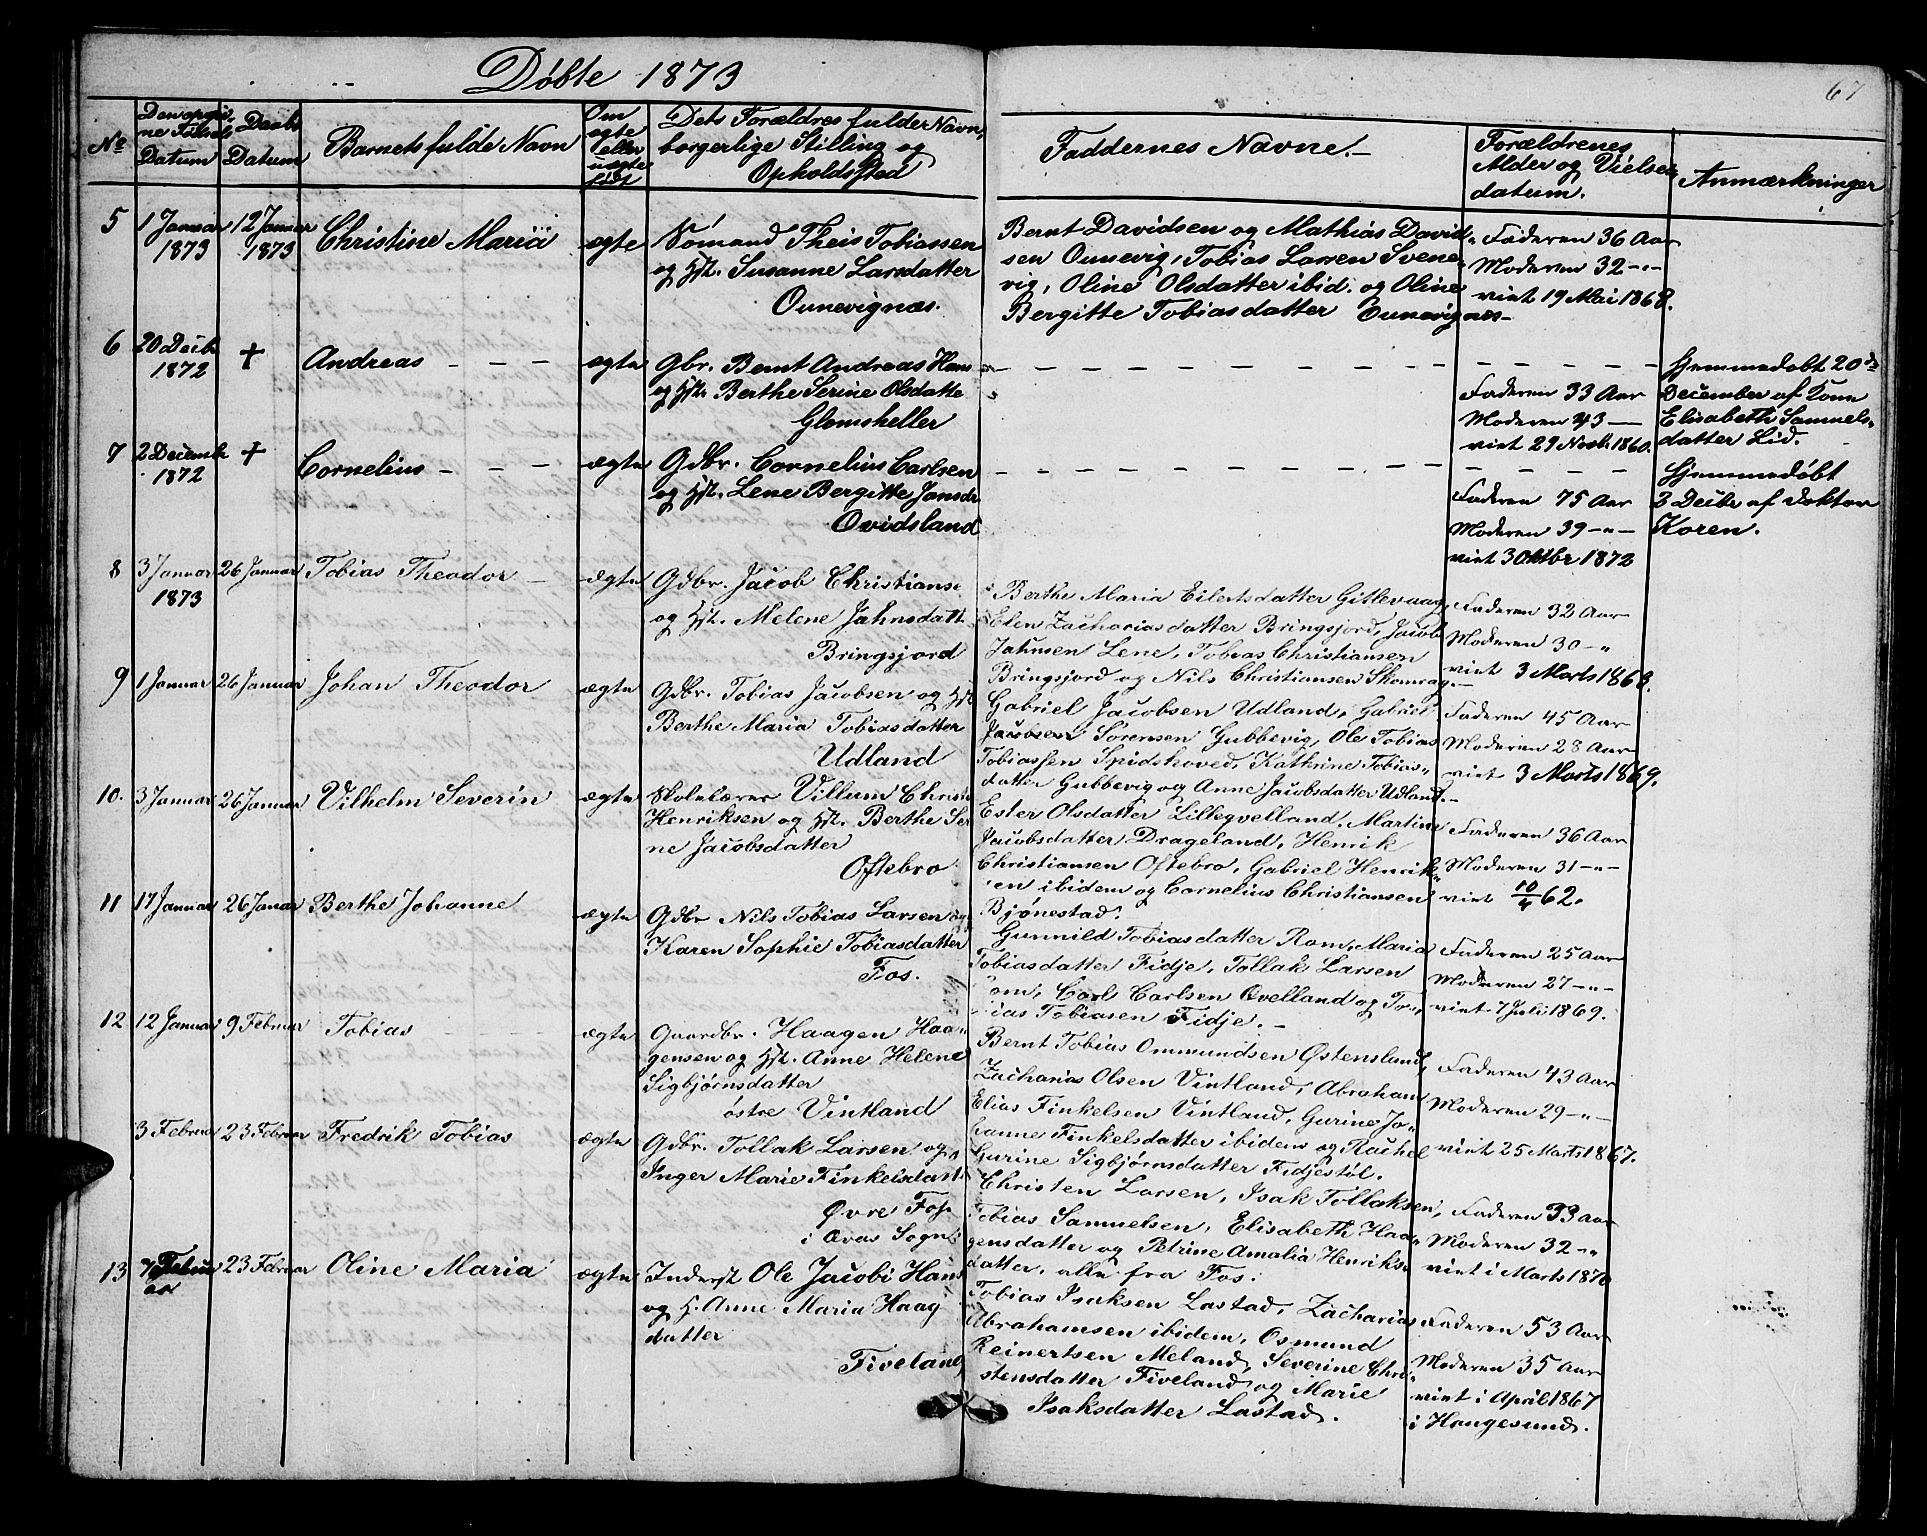 Döbte 1873
67
No
Den opgivne Fødsels Datum
Daabs Datum
Barnets fulde Navn
Om ægte eller uægte
Dets Forældres fulde Navn,
borgerlige Stilling og
Opholdsted
Faddernes Navne.
Forældrenes
Alder og Vielses
datum.
Anmærkninger
5
1 Januar
1873
12 Januar
1873
Christine Maria
ægte
Sömand Theis Tobiassen
og Hst. Susanne Larsdatter
Ounevignæs.
Bernt Davidsen og Mathias David-
sen Ounevig, Tobias Larsen Svene-
vig, Oline Olsdatter ibid. og Oline
Bergitte Tobiasdatter Ounevignæs
Faderen 36 Aar
Moderen 32 -"-
viet 19 Mai 1868.
6
20 Decbr
1872
+
Andreas - - -
ægte
Gbr. Bernt Andreas Hans
og Hst. Berthe Serine Olsdatte
Glomsheller
Faderen 33 Aar
Moderen 43 -
viet 29 Novb. 1860.
Hjemmedöbt 20de
December af Kone
Elisabeth Samuels-
datter Lid.
7
2 Decembr
1872
+
Cornelius - - -
ægte
Gdbr. Cornelius Carlsen
og Hst. Lene Bergitte Jansdr
Ovidsland
Faderen 75 Aar
Moderen 39 -"-
viet 3 Oktbr 1872
Hjemmedöbt
3 Decbr af Doktor
Koren.
8
3 Januar
1873
26 Januar
Tobias Theodor -
ægte
Gdbr. Jacob Christianse
og Hst. Melene Jahnsdatt
Bringsjord
Berthe Maria Eilertsdatter Gitlevaag,
Elen Zachariasdatter Bringsjord, Jacob
Jahnsen Lene, Tobias Christiansen
Bringsjord og Nils Christiansen Skomrag.-
Faderen 32 Aar
Moderen 30 -"
viet 3 Marts 1868.
9
1 Januar
26 Januar
Johan Theodor
ægte
Gdbr. Tobias Jacobsen og Hst
Berthe Maria Tobiasdatter
Udland
Gabriel Jacobsen Udland, Gabriel
Jacobsen Sörensen Gubbevig, Ole Tobias
Tobiassen Spidshoved, Kathrine Tobias-
datter Gubbevig og Anne Jacobsdatter Udland.-
Faderen 45 Aar
Moderen 28 Aar
viet 3 Marts 1869.
10.
3 Januar
26 Januar
Vilhelm Severin
ægte
Skolelærer Villum Christi
Henriksen og Hst. Berthe Ser
ne Jacobsdatter
Oftebro
Ester Olsdatter Lillegvelland, Martine
Jacobsdatter Drageland, Henrik
Christiansen Oftebro, Gabriel Henrik-
en ibidem og Cornelius Christiansen
Bjönestad.
Faderen 36 Aar
Moderen 31 -"-
viet 10/4 62.
11
17 Januar
26 Januar
Berthe Johanne
ægte
Gdbr Nils Tobias Larsen og
Karen Sophie Tobiasdatter
Fos.
Gunnild Tobiasdatter Rom, Maria
Tobiasdatter Fidje, Tollak Larsen
om, Carl Carlsen Ovelland og To-
ias Tobiasen Fidje. -
Faderen 25 Aar
Moderen 27 -"-
viet 7 Juli 1869.
12
12 Januar
9 Februar
Tobias
ægte
Gaardbr. Haagen Haa-
gensen og Hst. Anne Helene
Sigbjørnsdatter
østre Vintland
Bernt Tobias Ommundsen Østensland,
Zacharias Olsen Vintland, Abraham
Elias Finkelsen Vintland, Gurine Jo-
hanne Finkelsdatter ibidem og Rachel
Gurine Sigbjørnsdatter Fidjestöl.
Faderen 43 Aar
Moderen 29 -"-
viet 25 Marts 1867.
3 Februar
23 Februar
Fredrik Tobias
ægte
Gdbr. Tollak Larsen og
Inger Marie Finkelsdatt
Øvre Fos
i Avas Sogn.
Christen Larsen, Isak Tollaksen,
Tobias Samuelsen, Elisabeth Haa-
gensdatter og Petrine Amalia Henriks-
datter, alle fra Fos.
Faderen 33 Aar
Moderen 32 -"
viet i Marts 1870
13
7 Febru
ar
23 Februar
Oline Maria
ægte
Inderst Ole Jacobi Hans
og H. Anne Maria Haag
datter
Fiveland
Tobias Isaksen Lastad, Zacharias
Abrahamsen ibidem, Osmund
Reinertsen Meland, Severine Chri-
stensdatter Fiveland og Marie
Isaksdatter Lastad.
Faderen 53 Aar
Moderen 35 Aar
viet i April 1867
i Haugesund.